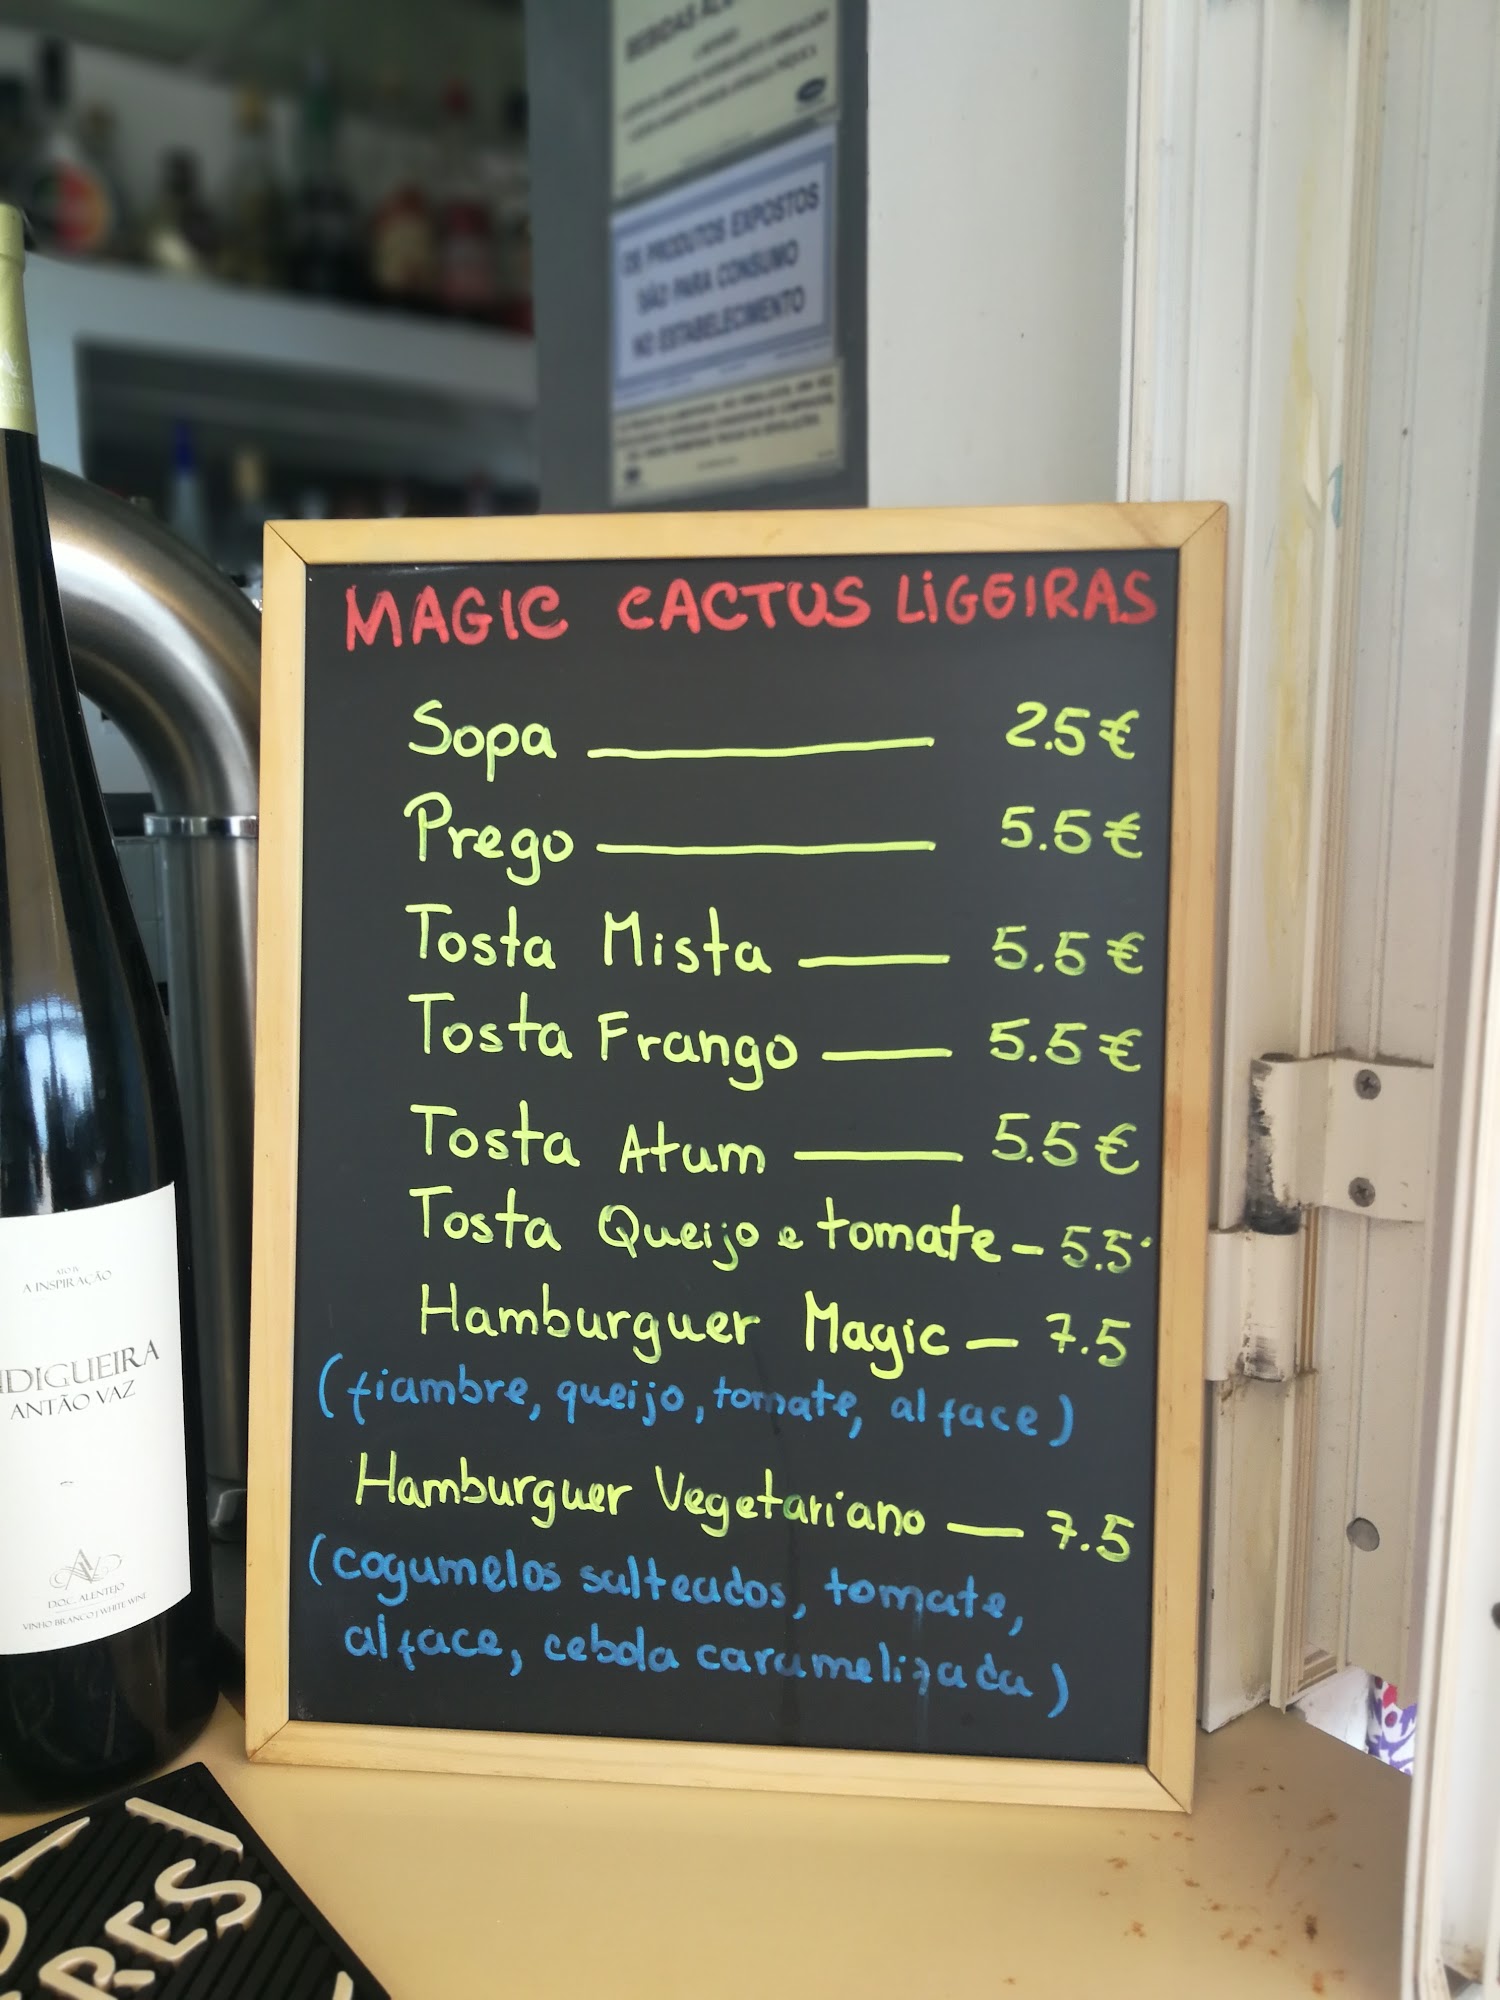 BEBIDAS
OS PRODUTOS EXPOSTOS
SÃO PARA CONSUMO
NO ESTABELECIMENTO
MAGIC CACTUS LIGEIRAS
Sopa — 2.5€
Prego — 5.5€
Tosta Mista — 5.5€
Tosta Frango — 5.5€
Tosta Atum — 5.5€
Tosta Queijo e tomate - 5.5
Hamburguer Magic — 7.5
(fiambre, queijo, tomate, alface)
Hamburguer Vegetariano — 7.5
(cogumelos salteados, tomate,
alface, cebola caramelizada)
ATO IV
A INSPIRAÇÃO
IDIGUEIRA
ANTÃO VAZ
AV
D.O.C. ALENTEJO
VINHO BRANCO | WHITE WINE
RES